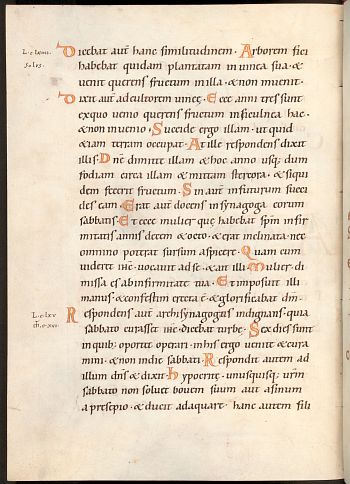 Dicebat aut̄ hanc similitudinem. Arborem fici
habebat quidam plantatam in vinea sua, &
venit querens fructum in illa, & non invenit.
Dixit aut̄ ad cultorem vineę. Ecce anni tres sunt
ex quo venio querens fructum in ficulnea hac,
& non invenio. Succide ergo illam. ut quid
&iam terram occupat. At ille respondens dixit
illis. Dn̄e dimitte illam & hoc anno usq; dum
fodiam circa illam & mittam stercora, & siqui
dem fecerit fructum. Sin aut̄ in futurum succi
des eam. Erat aut̄ docens in synagoga eorum
sabbatis. Et ecce mulier quę habebat sp̄m infir
mitatis annis decem & octo, & erat inclinata, nec
omnino poterat sursum aspicere. Quam cum
videret ih̄c vocavit ad se, & ait illi. Mulier di
missa es ab infirmitate tua. Et imposuit illi
manus, & confestim erecta ē & glorificabat dm̄.
Respondens aut̄ archisynagogus indignans, quia
sabbato curasset ih̄c dicebat turbę. Sex dies sunt
in quib; oportet operari. in his ergo venite & cura
mini, & non in die sabbati. Respondit autem ad
illum dn̄s & dixit. Hypocritę, unusquisq; vr̄m
sabbato non solvet bovem suum aut asinum
a presepio, & ducit adaquare. hanc autem fili